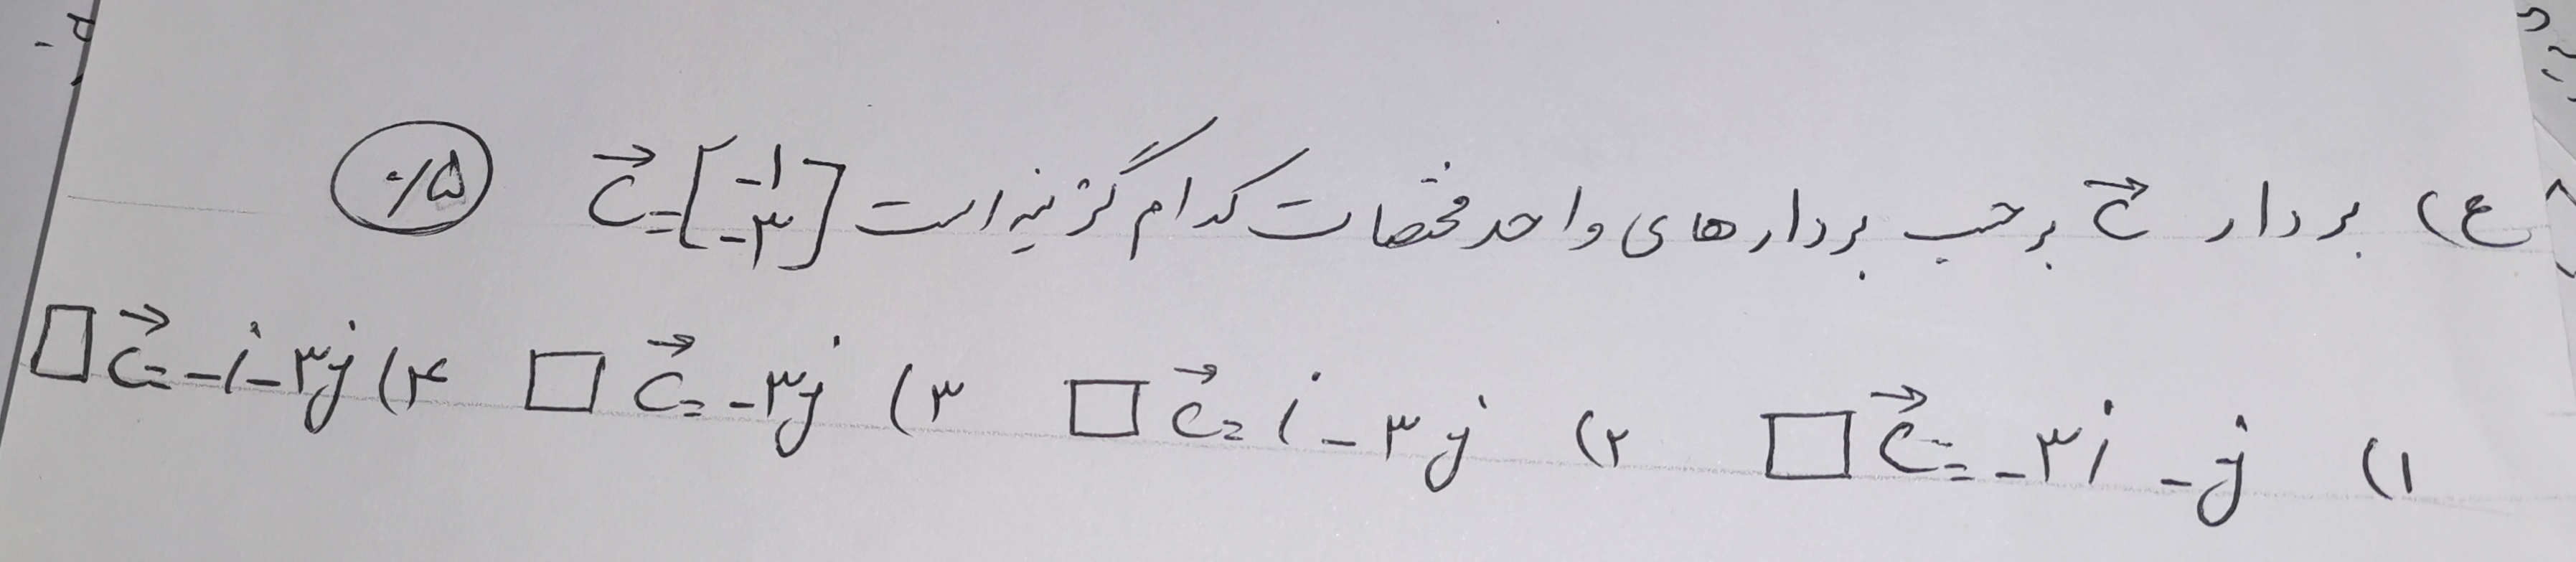 ع) بردار c⃗ برحسب بردارهای واحد مختصات کدام گزینه است c⃗=[-۱ -۳] ۰/۵
۱) c⃗=-۳i-j □ ۲) c⃗=i-۳j □ ۳) c⃗=-۳j □ ۴) c⃗=-i-۳j □